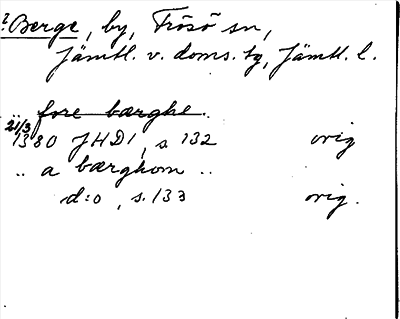 ? Berge, by, Frösö sn,
Jämtl. v. doms. tg, Jämtl. l.
.. fore bærghe ..
21/3 1380 JHD1, s 132 orig
.. a bærghom ..
d:o, s. 133 orig.